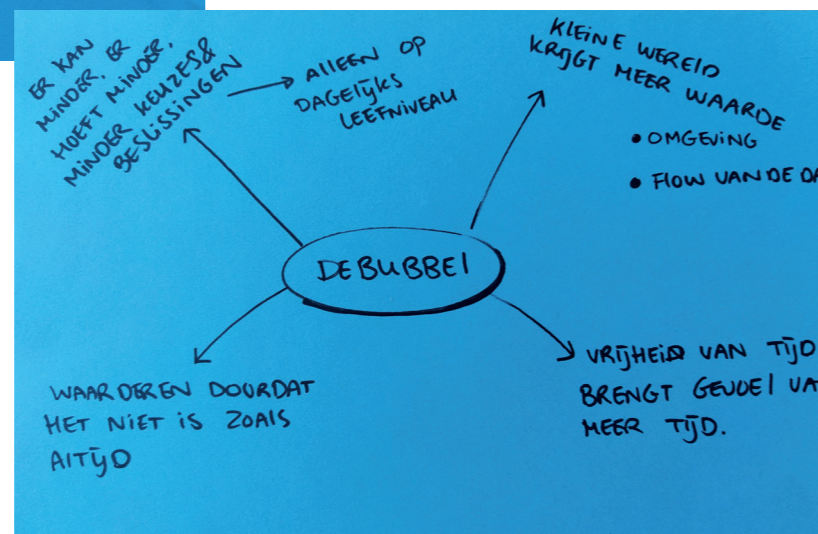 ER KAN
MINDER, ER
HOEFT MINDER,
MINDER KEUZES &
BESLISSINGEN
ALLEEN OP
DAGELIJKS
LEEFNIVEAU
KLEINE WERELD
KRIJGT MEER WAARDE
• OMGEVING
• FLOW VAN DE DA
DE BUBBEL
WAARDEREN DOORDAT
HET NIET IS ZOALS
ALTIJD
VRIJHEID VAN TIJD
BRENGT GEVOEL VA
MEER TIJD.